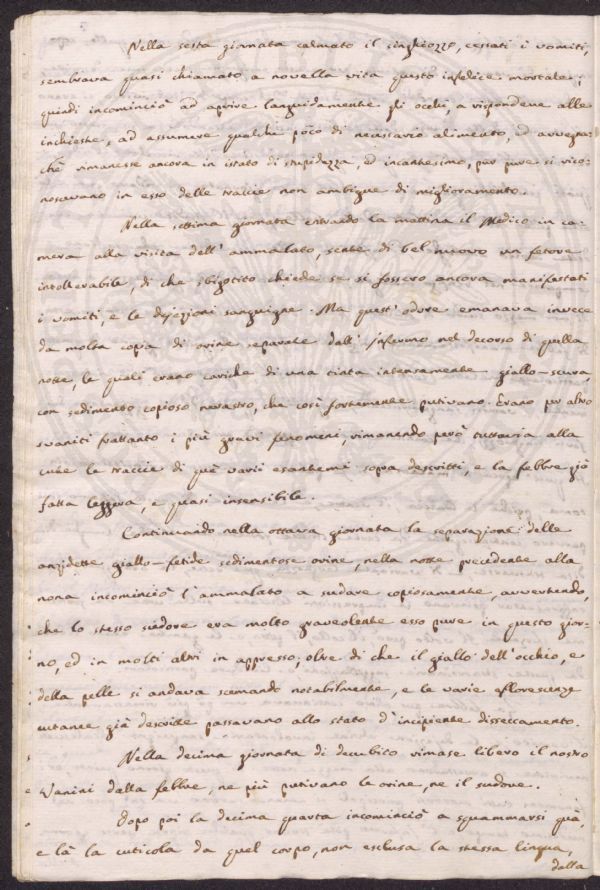 Nella sesta giornata calmato il singhiozzo, cessati i vomiti,
sembrava quasi chiamato a novella vita questo infelice mortale;
quindi incominciò ad aprire languidamente gli occhi, a rispondere alle
inchieste, ad assumere qualche poco di necessario alimento, ed avvegna-
chè rimanesse ancora in istato di stupidezza, ed incantesimo, pur pure si rico-
noscevano in esso delle traccie non ambigue di miglioramento.
Nella settima giornata entrando la mattina il Medico in ca-
mera alla visita dell'ammalato, sente di bel nuovo un fetore
intollerabile, di che sbigotito chiede se si fossero ancora manifestati
i vomiti, e le dejezioni sanguigne. Ma quest'odore emanava invece
da molta copia di orine separate dall'infermo nel decorso di quella
notte, le quali erano cariche di una tinta intensamente giallo-scura,
con sedimento copioso nerastro, che così fortemente putivano. Erano per altro
svaniti frattanto i più gravi fenomeni, rimanendo però tuttavia alla
cute le traccie di què varii esantemi sopra descritti, e la febbre già
fatta leggera, e quasi insensibile.
Continuando nella ottava giornata la separazione delle
anzidette giallo-fetide sedimentose orine, nella notte precedente alla
nona incominciò l'ammalato a sudare copiosamente, avvertendo,
che lo stesso sudore era molto graveolente esso pure in questo gior-
no, ed in molti altri in appresso; oltre di che il giallo dell'occhio, e
della pelle si andava scemando notabilmente, e le varie eflorescenze
cutanee già descritte passavano allo stato d'incipiente disseccamento.
Nella decima giornata di decubito rimase libero il nostro
Vanini dalla febbre, ne più putivano le orine, ne il sudore.
Dopo poi la decima quarta incominciò a squammarsi quà,
e là la cuticola da quel corpo, non esclusa la stessa lingua,
dalla